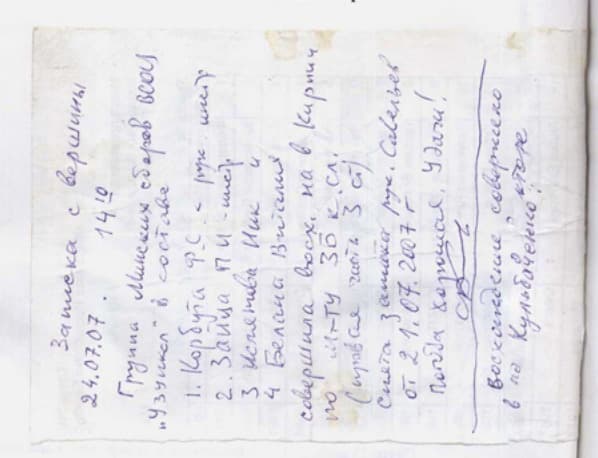 Записка с вершины
24.07.07. 14 10
Группа Минских сборов
"Узункол" в составе
1. Корбута ФС - рук. инстр
2. Зайца ПИ - инстр
3 Ник и
4 Белана Виталия
совершила восх. на в. Кирпич
по м-ту 3Б к. сл.
(правая часть 3 ст)
Снята записка рук. Савельев
от 21.07.2007 г
Погода хорошая. Удачи!
Восхождение совершено
в па Кульбаченко